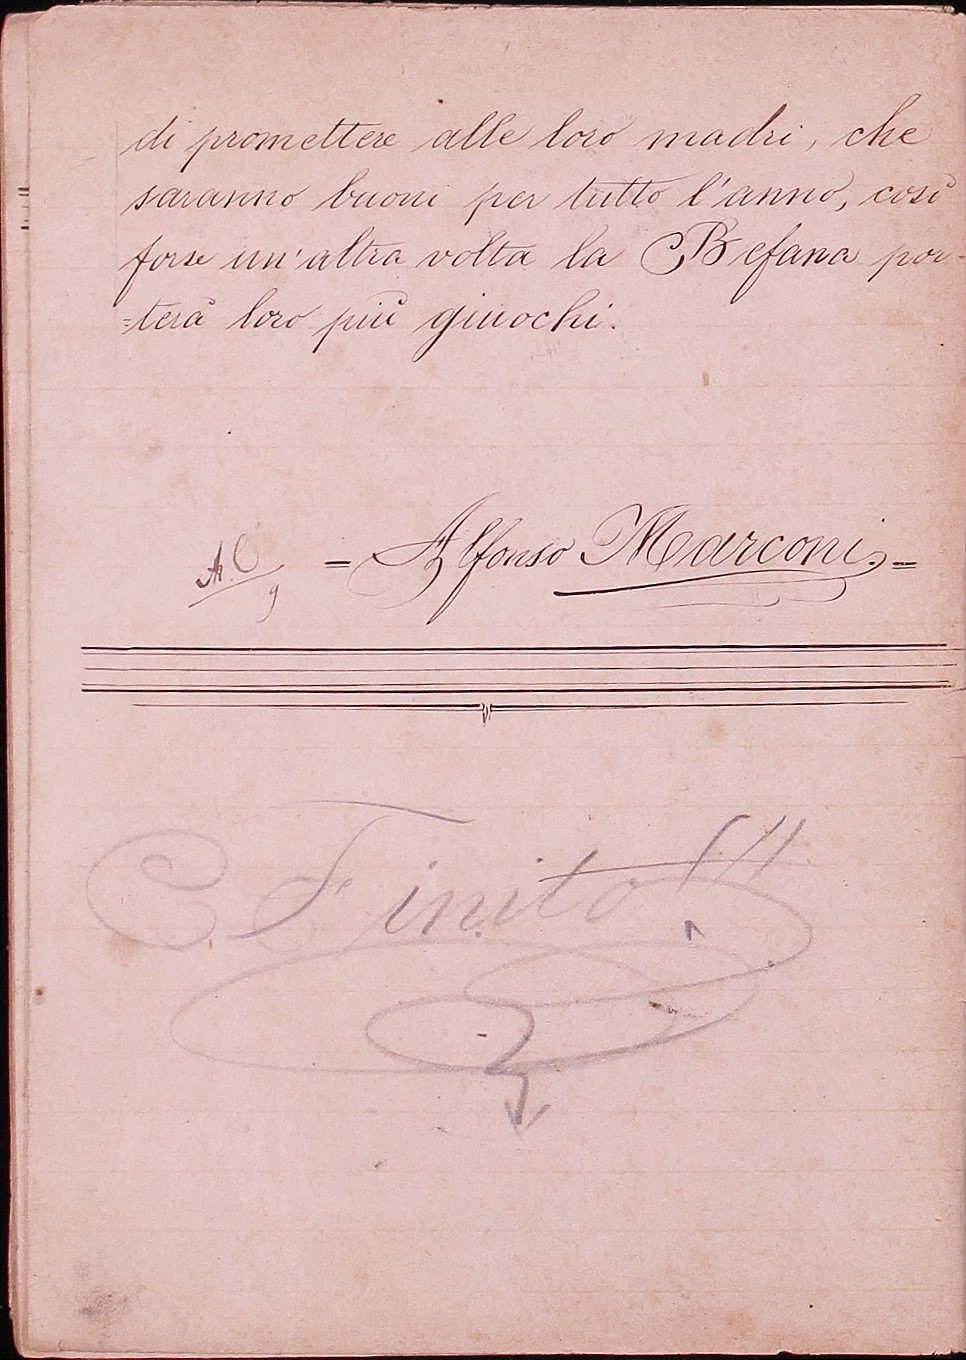 di promettere alle loro madri, che
saranno buoni per tutto l'anno, così
forse un'altra volta la Befana por-
=terà loro più giuochi.
= Alfonso Marconi. =
9
Finito!!!